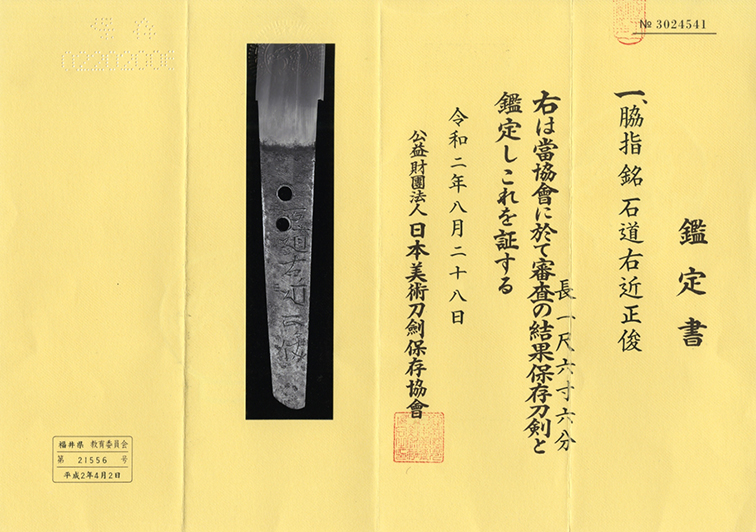 № 3024541
鑑定書
一、脇指 銘 石道右近正俊
長一尺六寸六分
右は當協會に於て審査の結果保存刀剣と
鑑定しこれを証する
令和二年八月二十八日
公益財團法人 日本美術刀劍保存協會
保存
02202006
福井県 教育委員会
第 21556 号
平成2年4月2日